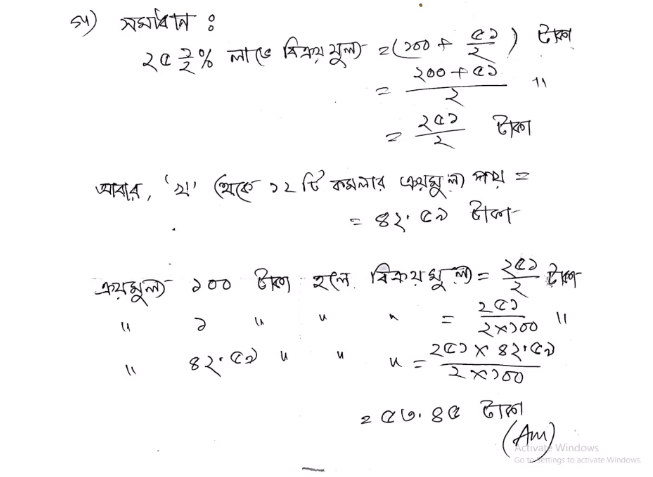 গ) সমাধান :
২৫ ১/২ % লাভে বিক্রয়মূল্য = (১০০ + ৫১/২) টাকা
= (২০০ + ৫১)/২ "
= ২৫১/২ টাকা
আবার, 'খ' থেকে ১২ টি কমলার ক্রয়মূল্য পায় =
= ৪২.৫৯ টাকা
ক্রয়মূল্য ১০০ টাকা হলে বিক্রয়মূল্য = ২৫১/২ টাকা
" ১ " " " = ২৫১/২×১০০ "
" ৪২.৫৯ " " " = ২৫১ × ৪২.৫৯/২×১০০
= ৫৩.৪৫ টাকা
(Ans)
Activate Windows
Go to Settings to activate Windows.